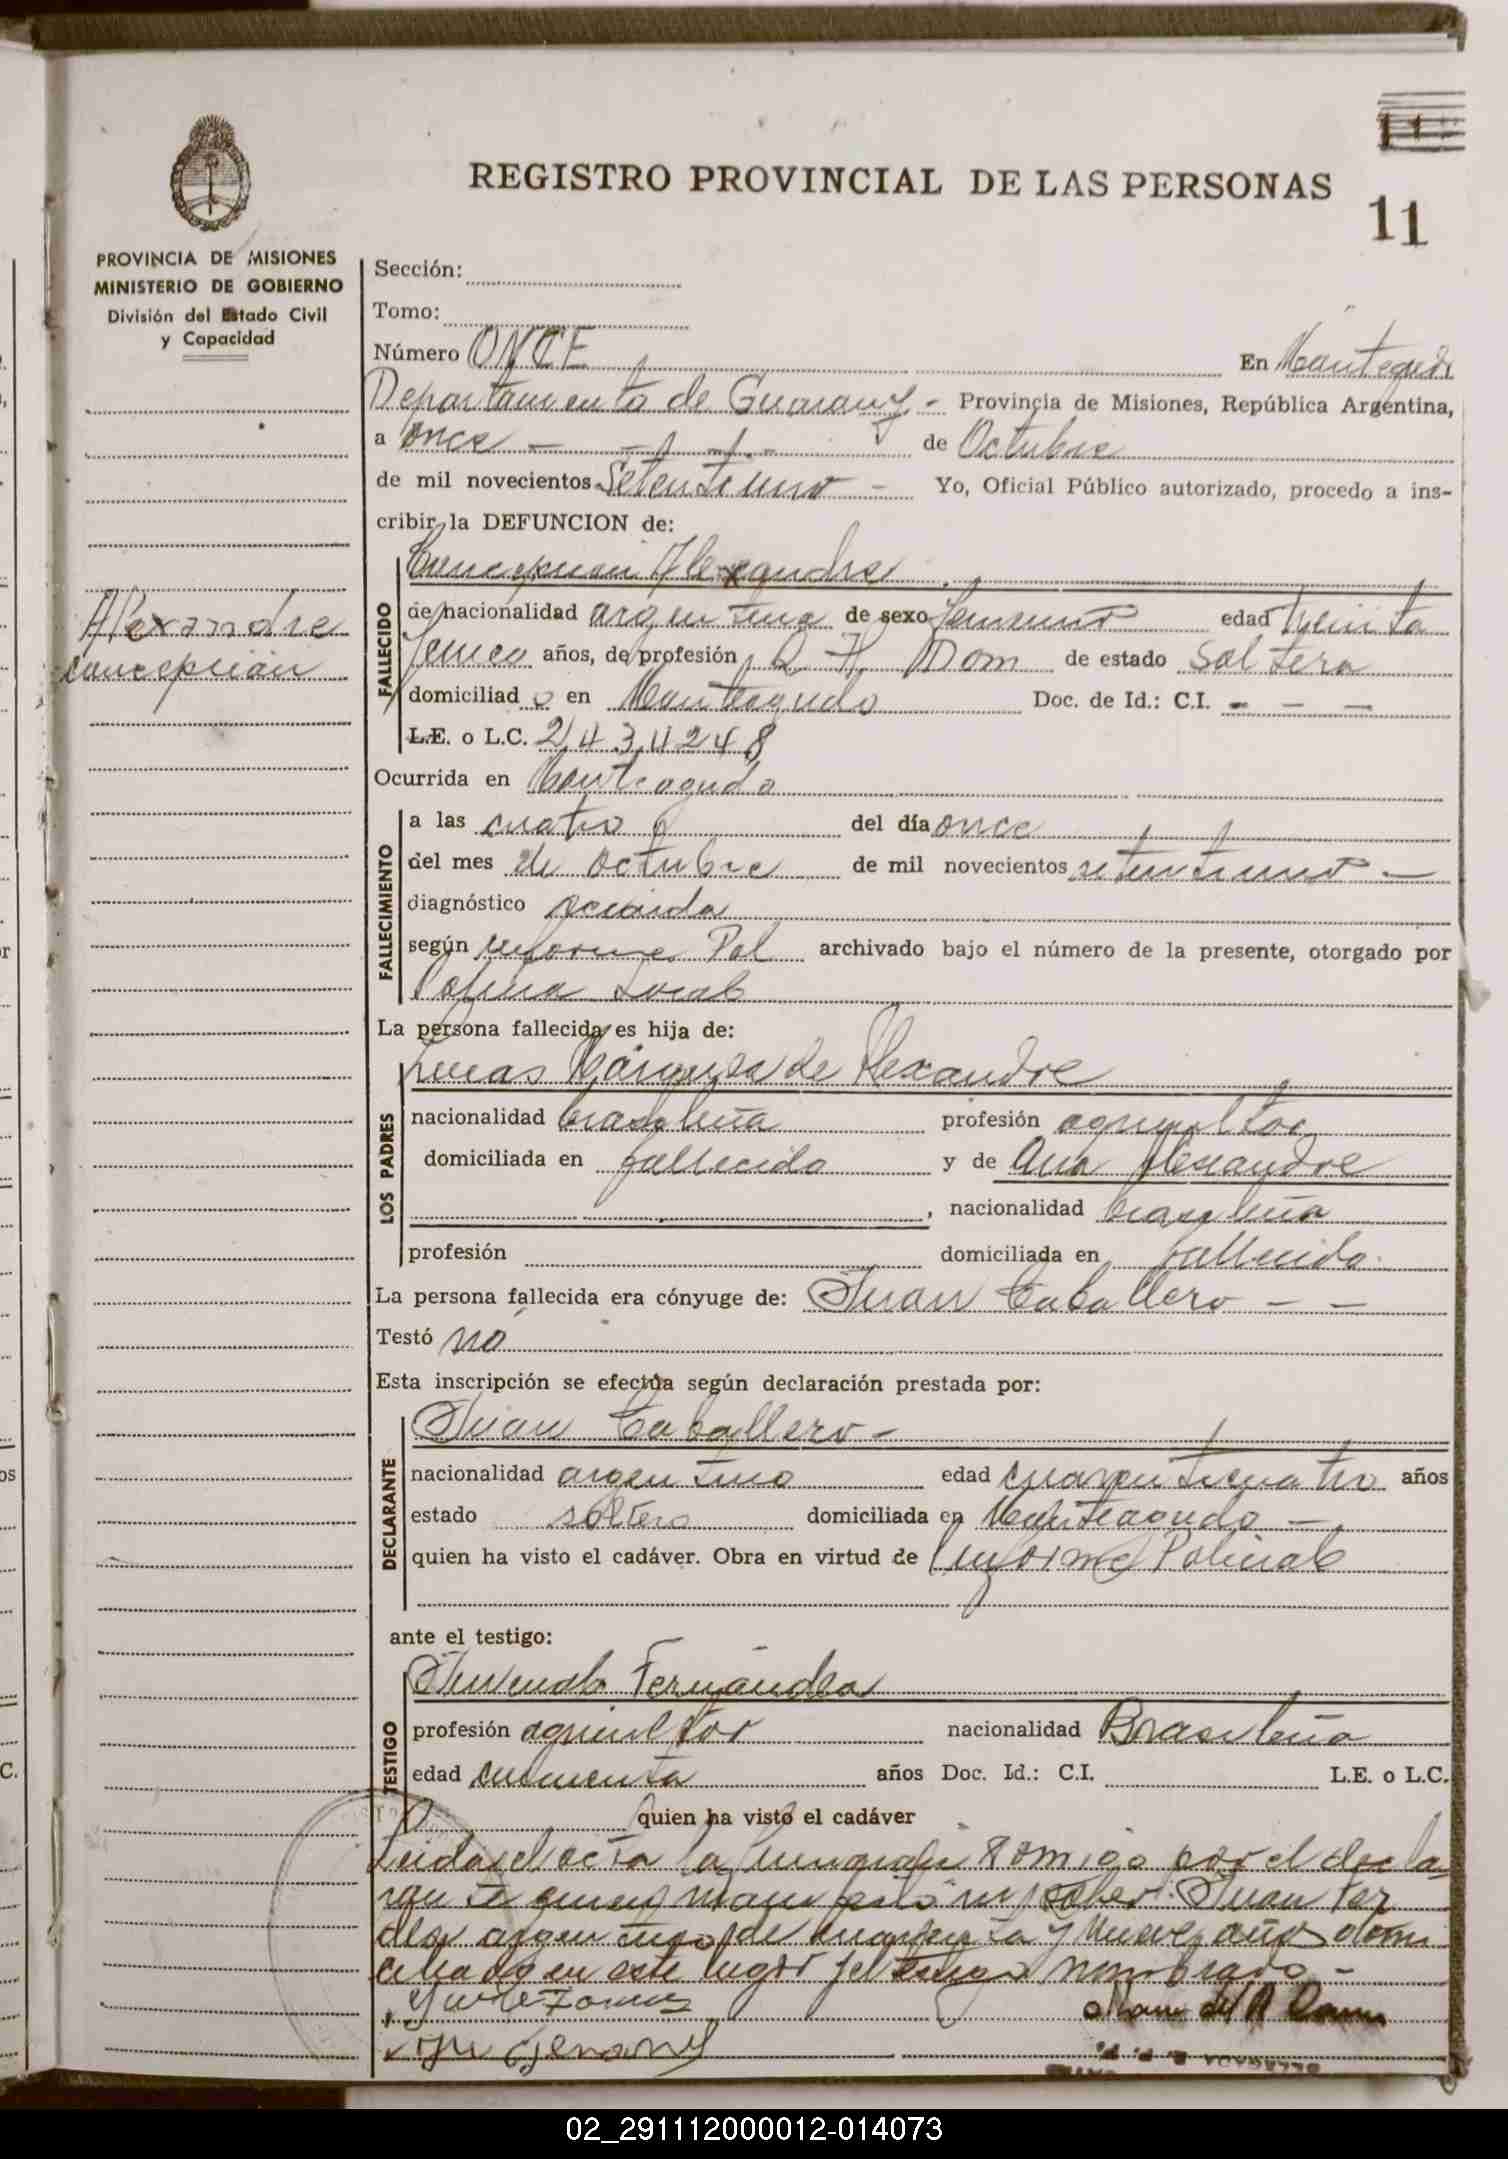 11
REGISTRO PROVINCIAL DE LAS PERSONAS
11
PROVINCIA DE MISIONES
MINISTERIO DE GOBIERNO
División del Estado Civil
y Capacidad
Alexandre
Concepción
Sección:
Tomo:
Número ONCE En Monteagudo
Departamento de Guaraný - Provincia de Misiones, República Argentina,
a once - de Octubre
de mil novecientos Setentiuno - Yo, Oficial Público autorizado, procedo a ins-
cribir la DEFUNCION de:
Concepción Alexandre
FALLECIDO
de nacionalidad argentina de sexo femenino edad treinta
años, de profesión Q. H. Dom de estado Soltera
domiciliad o en Monteagudo Doc. de Id.: C.I. - - -
L.E. o L.C. 2434248
Ocurrida en Monteagudo
FALLECIMIENTO
a las cuatro del día once
del mes de octubre de mil novecientos setentiuno -
diagnóstico
según informe Pol archivado bajo el número de la presente, otorgado por
Policia Local
La persona fallecida es hija de:
Lucas de Alexandre
LOS PADRES
nacionalidad brasileña profesión agricultor
domiciliada en fallecido y de Ana Alexandre
, nacionalidad brasileña
profesión domiciliada en fallecida.
La persona fallecida era cónyuge de: Juan Caballero - -
Testó no
Esta inscripción se efectúa según declaración prestada por:
Juan Caballero -
DECLARANTE
nacionalidad argentino edad cuarenticuatro años
estado soltero domiciliada en Monteagudo -
quien ha visto el cadáver. Obra en virtud de Informe Policial
ante el testigo:
Juvenal Fernández
TESTIGO
profesión agricultor nacionalidad Brasileña
edad cincuenta años Doc. Id.: C.I. L.E. o L.C.
quien ha visto el cadáver
Leida el acta la firmaron conmigo por el decla-
rante quien manifestó no saber. Juan
argentino de cuarenta y nueve años domi
ciliado en este lugar y el testigo nombrado -
02_291112000012-014073